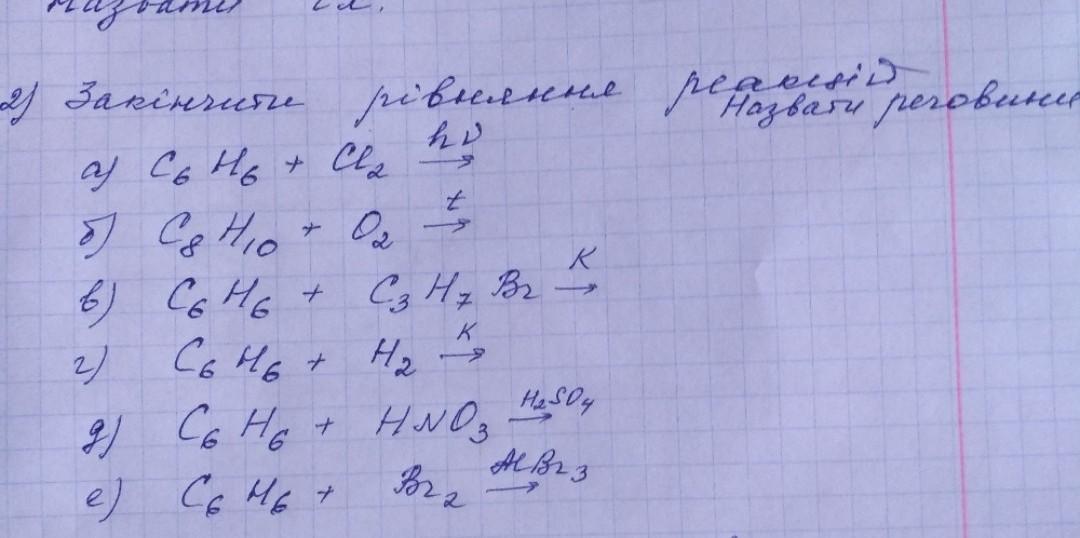 Назвати
2) Закінчити рівняння реакцій
Назвати речовини
а) C₆H₆ + Cl₂ →hν
б) C₈H₁₀ + O₂ →t
в) C₆H₆ + C₃H₇Br →K
г) C₆H₆ + H₂ →K
д) C₆H₆ + HNO₃ →H₂SO₄
е) C₆H₆ + Br₂ →AlBr₃